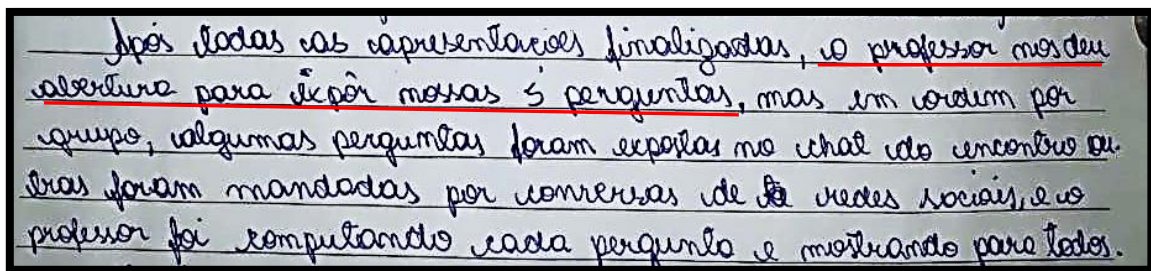 Após todas as apresentações finalizadas, o professor nos deu
abertura para expôr nossas 5 perguntas, mas em ordem por
grupo, algumas perguntas foram expostas no chat do encontro ou-
tras foram mandadas por conversas de redes sociais, e o
professor foi computando cada pergunta e mostrando para todos.